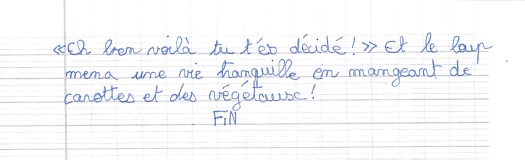 «Eh bien voilà tu t'es décidé!» Et le loup
mena une vie tranquille en mangeant de
carottes et des végétause!
FiN